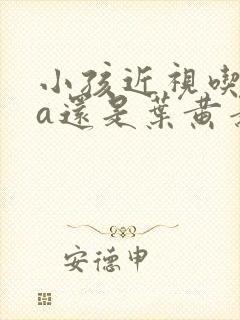 小孩近視喫
a還是葉黃
安德申